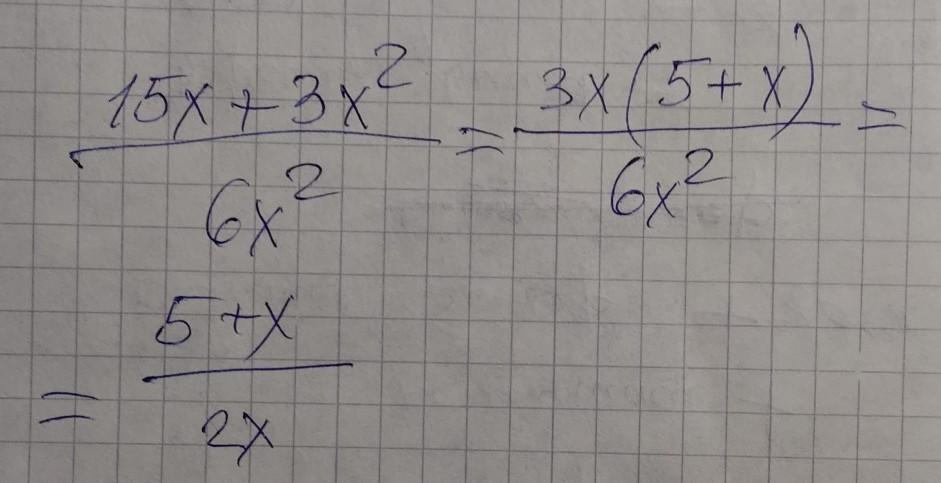 (15x + 3x²)/(6x²) = (3x(5 + x))/(6x²) =
= (5 + x)/(2x)